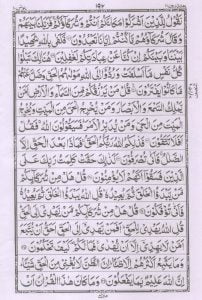 نَقُوْلُ لِلَّذِيْنَ اَشْرَكُوْا مَكَانَكُمْ اَنْتُمْ وَشُرَكَآؤُكُمْ فَزَيَّلْنَا بَيْنَهُمْ
وَقَالَ شُرَكَآؤُهُمْ مَّا كُنْتُمْ اِيَّانَا تَعْبُدُوْنَ فَكَفٰى بِاللّٰهِ شَهِيْدًا
بَيْنَنَا وَبَيْنَكُمْ اِنْ كُنَّا عَنْ عِبَادَتِكُمْ لَغٰفِلِيْنَ هُنَالِكَ تَبْلُوْا
كُلُّ نَفْسٍ مَّآ اَسْلَفَتْ وَرُدُّوْٓا اِلَى اللّٰهِ مَوْلٰىهُمُ الْحَقِّ وَضَلَّ عَنْهُمْ
مَّا كَانُوْا يَفْتَرُوْنَ قُلْ مَنْ يَّرْزُقُكُمْ مِّنَ السَّمَآءِ وَالْاَرْضِ اَمَّنْ
يَّمْلِكُ السَّمْعَ وَالْاَبْصَارَ وَمَنْ يُّخْرِجُ الْحَيَّ مِنَ الْمَيِّتِ وَيُخْرِجُ
الْمَيِّتَ مِنَ الْحَيِّ وَمَنْ يُّدَبِّرُ الْاَمْرَ فَسَيَقُوْلُوْنَ اللّٰهُ فَقُلْ
اَفَلَا تَتَّقُوْنَ فَذٰلِكُمُ اللّٰهُ رَبُّكُمُ الْحَقُّ فَمَاذَا بَعْدَ الْحَقِّ اِلَّا
الضَّلٰلُ فَاَنّٰى تُصْرَفُوْنَ كَذٰلِكَ حَقَّتْ كَلِمَتُ رَبِّكَ عَلَى
الَّذِيْنَ فَسَقُوْٓا اَنَّهُمْ لَا يُؤْمِنُوْنَ قُلْ هَلْ مِنْ شُرَكَآئِكُمْ
مَّنْ يَّبْدَؤُا الْخَلْقَ ثُمَّ يُعِيْدُهٗ قُلِ اللّٰهُ يَبْدَؤُا الْخَلْقَ ثُمَّ يُعِيْدُهٗ
فَاَنّٰى تُؤْفَكُوْنَ قُلْ هَلْ مِنْ شُرَكَآئِكُمْ مَّنْ يَّهْدِيْٓ اِلَى الْحَقِّ
قُلِ اللّٰهُ يَهْدِيْ لِلْحَقِّ اَفَمَنْ يَّهْدِيْٓ اِلَى الْحَقِّ اَحَقُّ اَنْ يُّتَّبَعَ
اَمَّنْ لَّا يَهِدِّيْٓ اِلَّآ اَنْ يُّهْدٰى فَمَا لَكُمْ كَيْفَ تَحْكُمُوْنَ
وَمَا يَتَّبِعُ اَكْثَرُهُمْ اِلَّا ظَنًّا اِنَّ الظَّنَّ لَا يُغْنِيْ مِنَ الْحَقِّ شَيْئًا
اِنَّ اللّٰهَ عَلِيْمٌۢ بِمَا يَفْعَلُوْنَ وَمَا كَانَ هٰذَا الْقُرْاٰنُ اَنْ